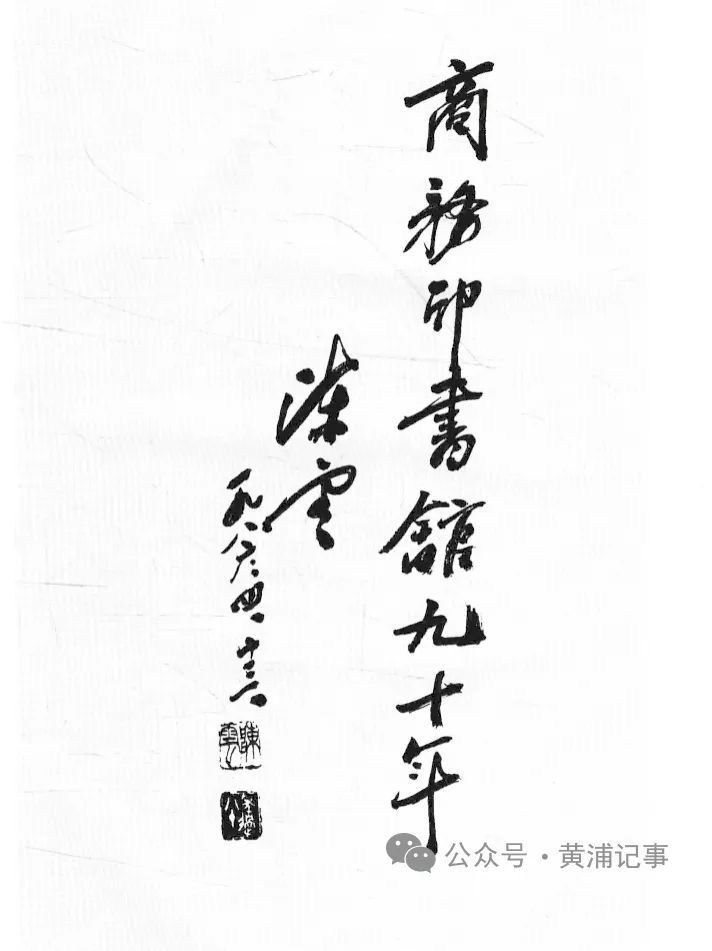 商務印書館九十年
陳雲
一九八六、四、
陳雲
公众号·黄浦记事